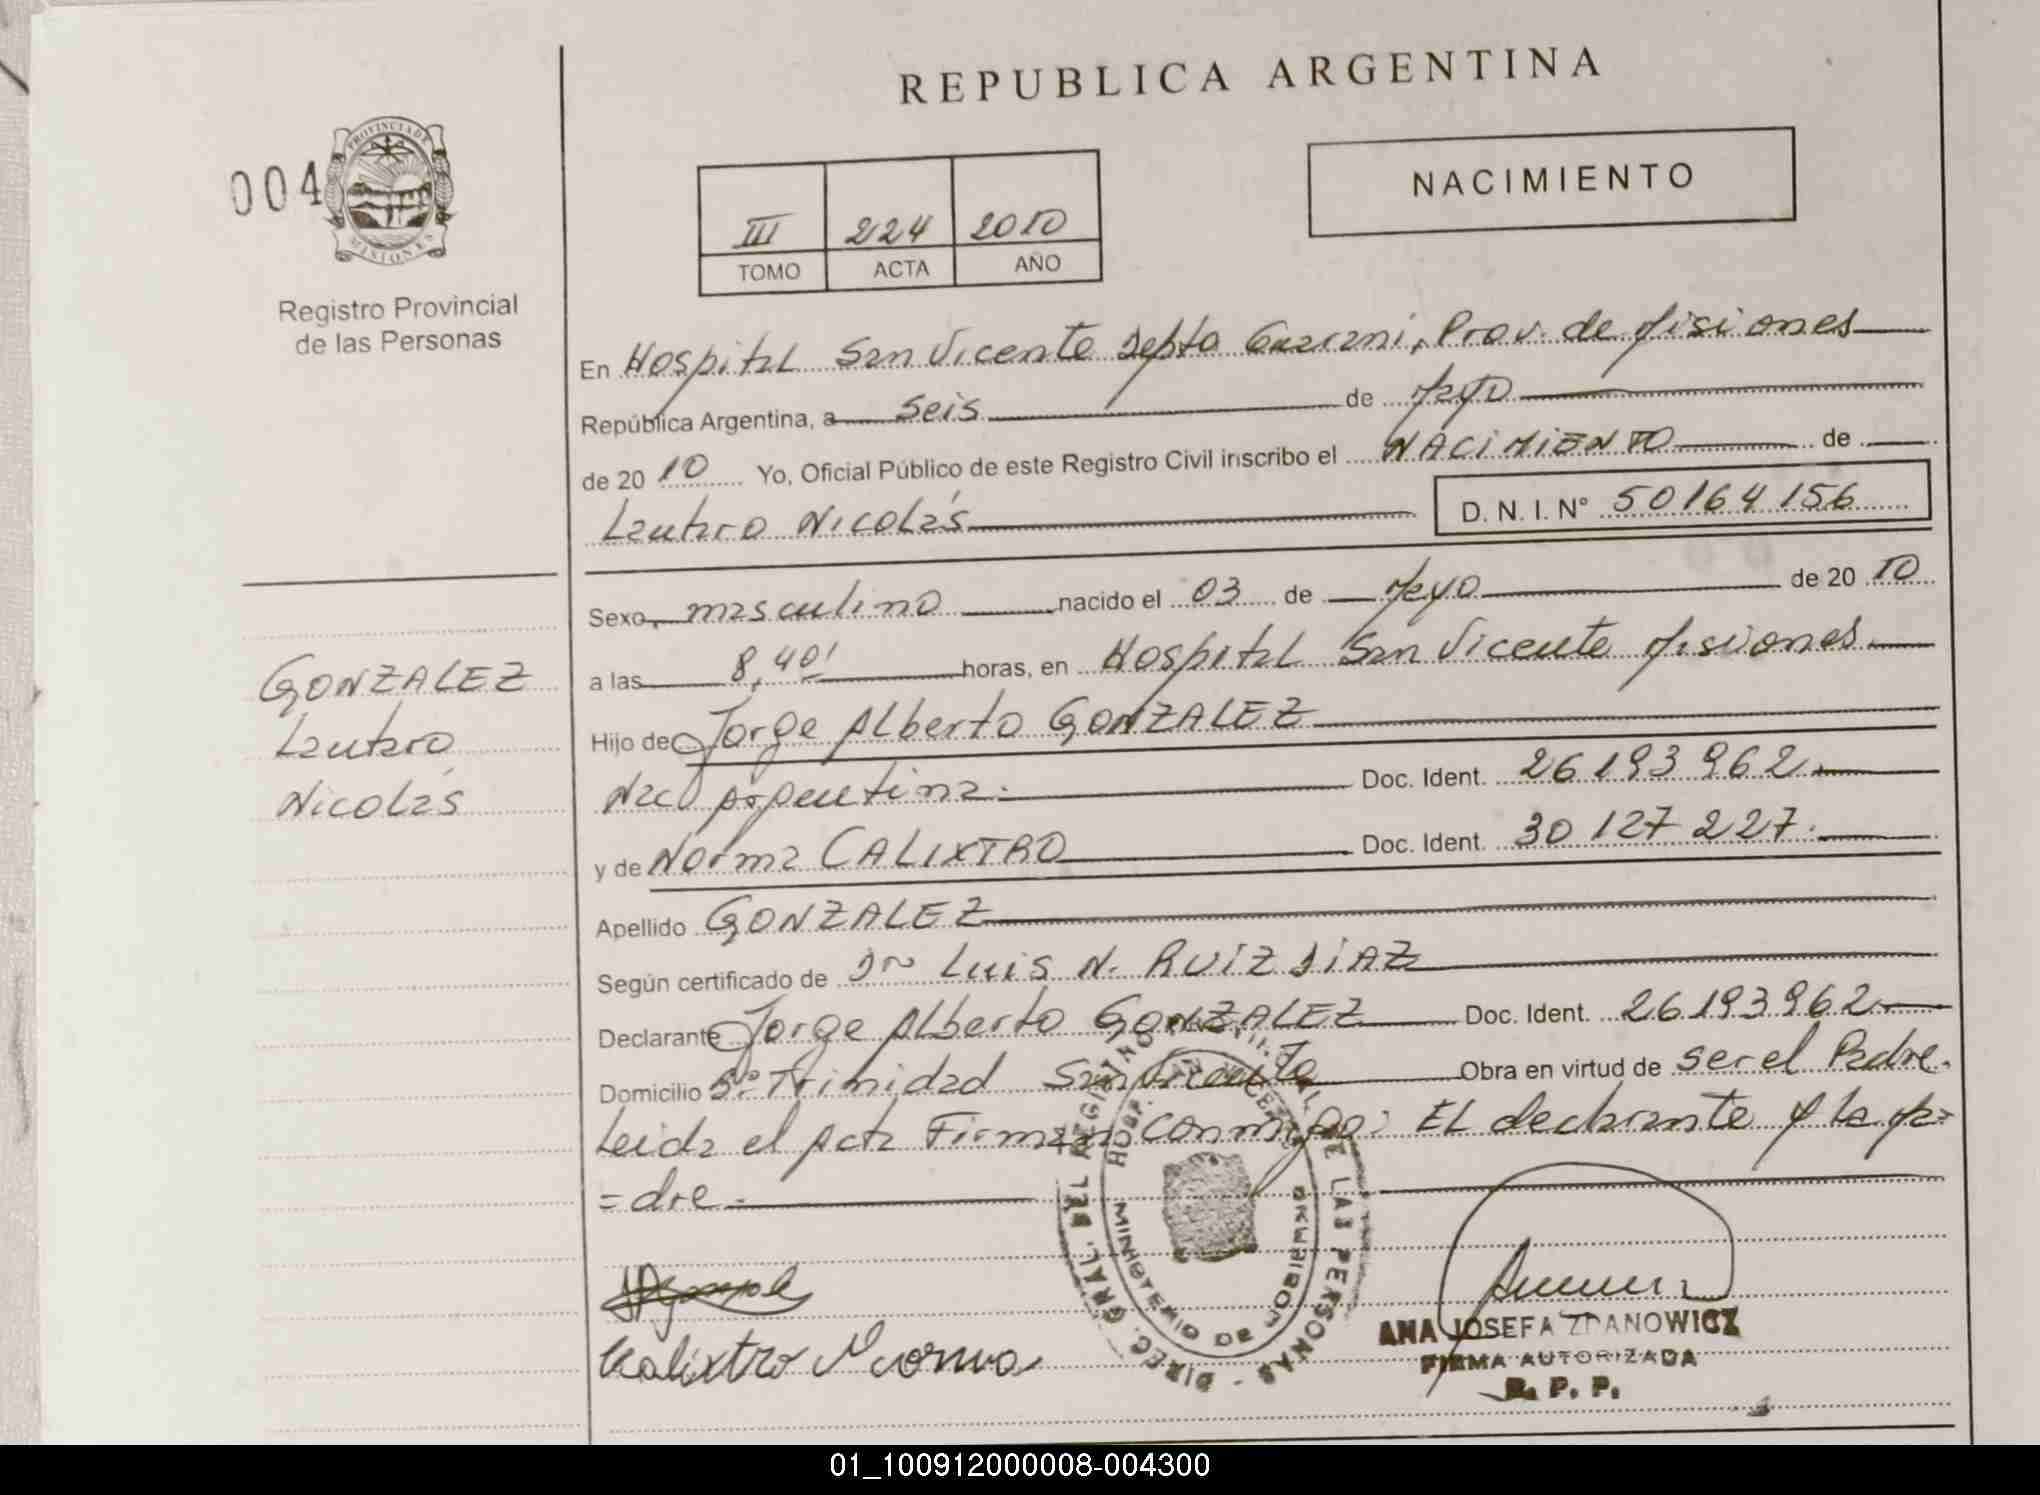 REPUBLICA ARGENTINA
004
PROVINCIA DE
MISIONES
Registro Provincial
de las Personas
III 224 2010
TOMO ACTA AÑO
NACIMIENTO
En Hospital San Vicente Depto Guaraní, Prov. de Misiones
República Argentina, a seis de Mayo
de 2010 Yo, Oficial Público de este Registro Civil inscribo el NACIMIENTO de
Lautaro Nicolás D. N. I. Nº 50164156
Sexo, masculino nacido el 03 de Mayo de 2010
a las 8,40' horas, en Hospital San Vicente Misiones.
Hijo de Jorge Alberto GONZALEZ
Nac Argentina. Doc. Ident. 26193962.
y de Norma CALIXTRO Doc. Ident. 30127227.
Apellido GONZALEZ
Según certificado de Dr Luis N. RUIZ DIAZ
Declarante Jorge Alberto GONZALEZ Doc. Ident. 26193962.
Domicilio Bº Trinidad San Vicente Obra en virtud de ser el Padre.
Leida el Acta Firman conmigo: El declarante y la Ma=
=dre.
GONZALEZ
Lautaro
Nicolás
Kalixtro Norma
DIREC. GRAL. DEL REGISTRO DE LAS PERSONAS
HOSP.
ANA JOSEFA ZDANOWICZ
FIRMA AUTORIZADA
R. P. P.
01_100912000008-004300